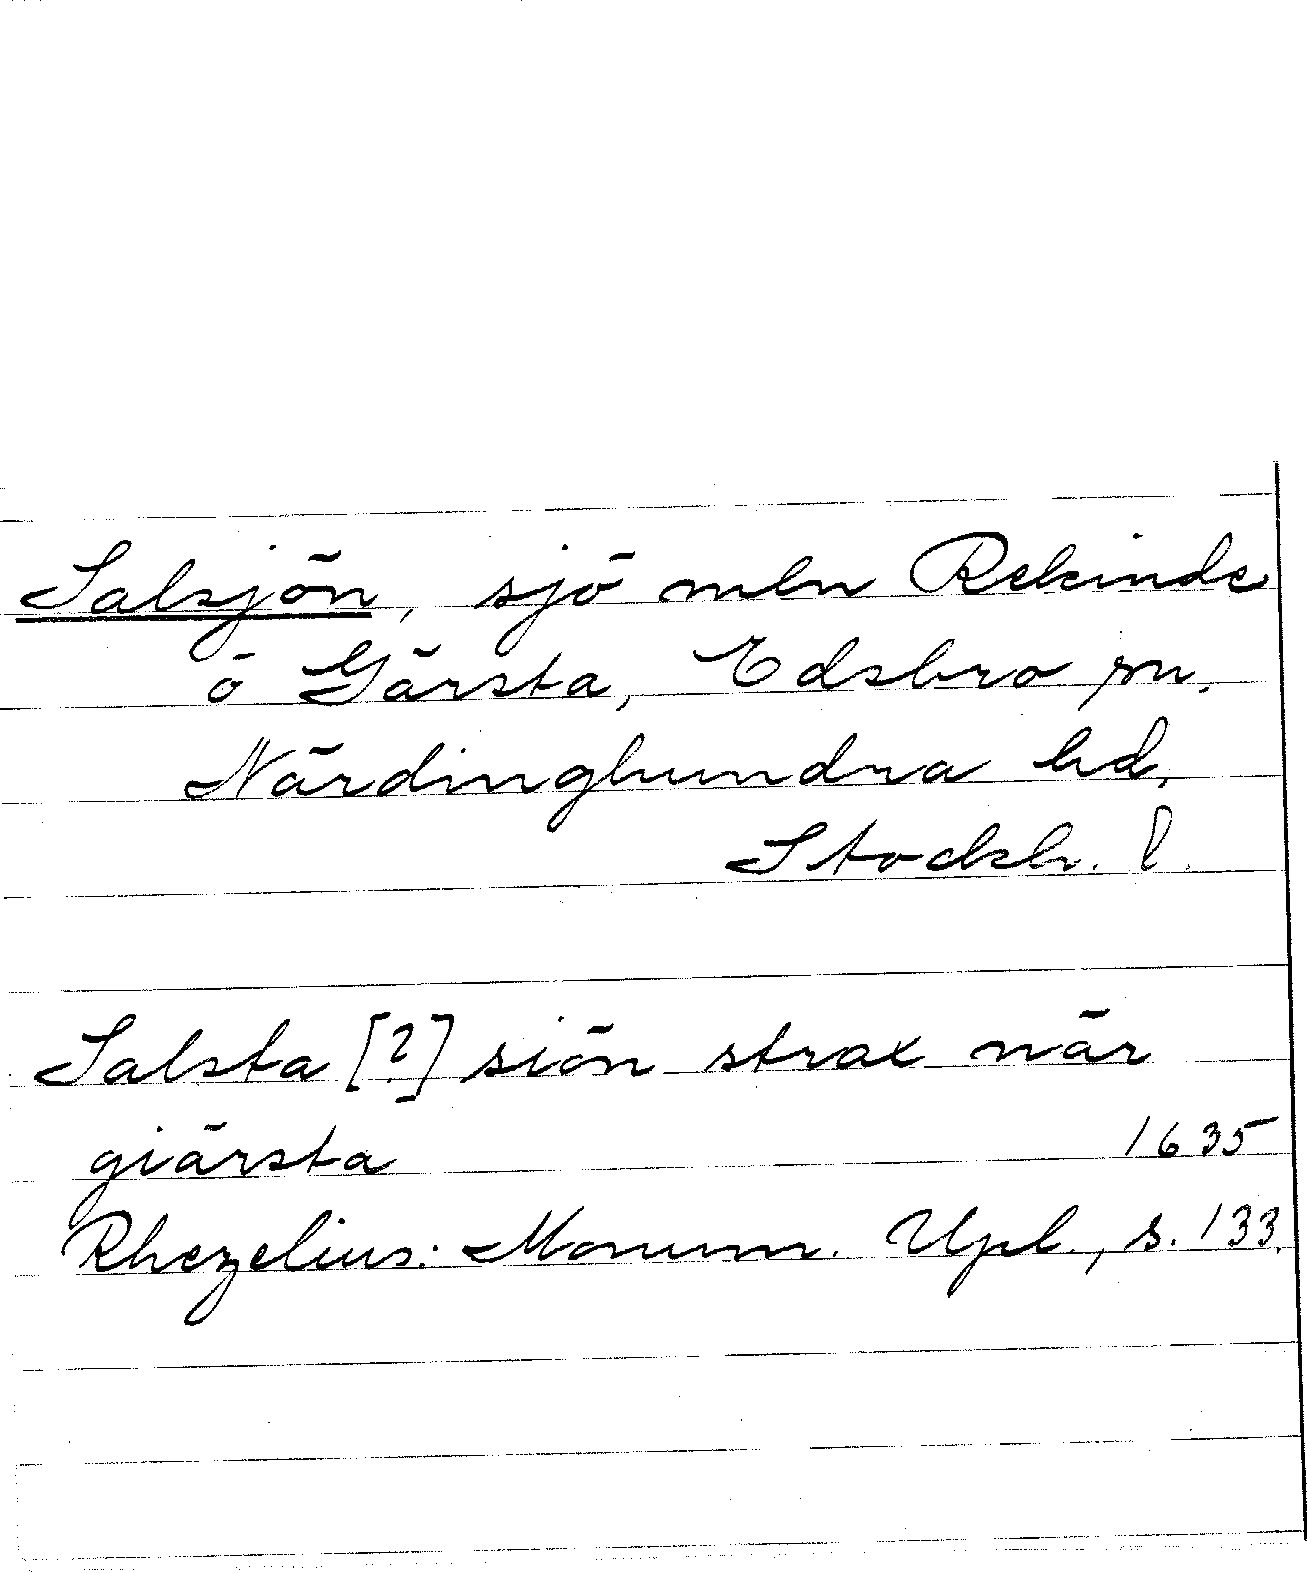 Salsjön, sjö mln Rekinde
o Gärsta, Edsbro sn,
Närdinghundra hd,
Stockh. l.
Salsta [?] siön strax när
giärsta 1635
Rhezelius: Monum. Upl., s. 133.